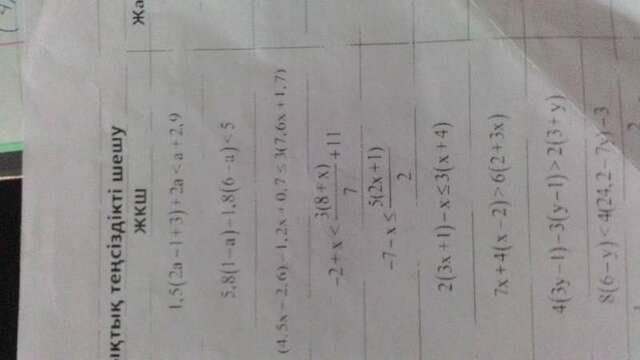 теңсіздікті шешу
ЖКШ
1,5(2a-1+3)+2a<a+2,9
5,8(1-a)-1,8(6-a)<5
(4,5x-2,6)-1,2x+0,7≤3(7,6x+1,7)
-2+x<\frac{3(8+x)}{7}+11
-7-x≤\frac{5(2x+1)}{2}
2(3x+1)-x≤3(x+4)
7x+4(x-2)>6(2+3x)
4(3y-1)-3(y-1)>2(3+y)
8(6-y)<4(24,2-7y)-3